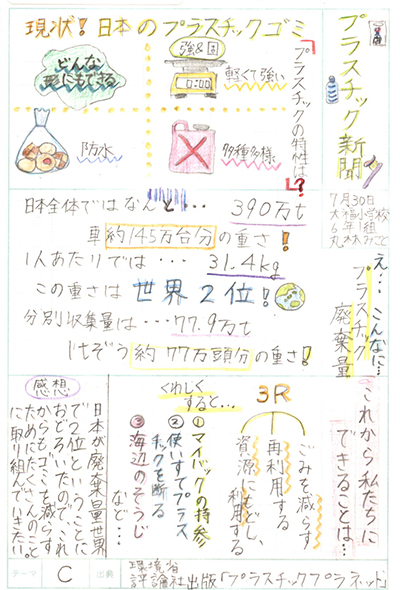 プラスチック新聞
7月30日
大福小学校
6年1組
丸林みさと
現状!日本のプラスチックゴミ
プラスチックの特性は!?
強&固
0:00
軽くて強い
どんな
形にもできる
多種多様
防水
え…こんなに…
プラスチック
廃棄量
日本全体ではなんと… 390万t
車約145万台分の重さ!
1人あたりでは… 31.4kg
この重さは世界2位!
分別収集量は… 77.9万t
1けぞう約77万頭分の重さ!
これから私たちに
できることは…
3R
ごみを減らす
再利用する
資源にもどし、
利用する
くわしく
すると…
①マイバックの持参
②使いすてプラス
チックを断る
③海辺のそうじ
など…
感想
日本が廃棄量世界
で2位ということに
おどろいたので、これ
からもゴミを減らす
ためにたくさんのこと
に取り組んでいきたい
テーマ C 出典 環境省
評論社出版「プラスチックプラネット」